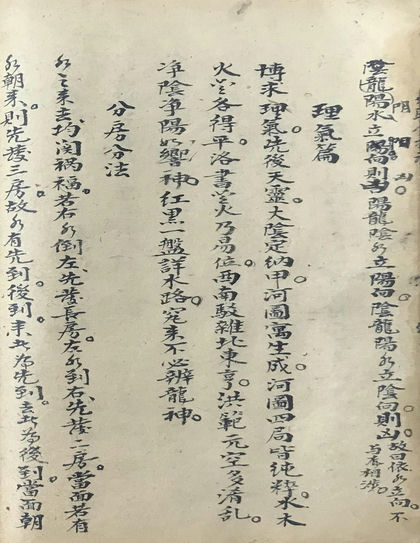 陰龍陽水立陽向則凶陽龍陰水立陽向陰龍陽水立陰向則凶故曰依水立向不與者相涉
理氣篇
博求理氣先後天靈大陰定納甲河圖寓生成河圖四局皆純粹水木
火金各得平洛書金火乃易位西南駁雜北東亨洪範元空多淆亂
净陰净陽如響神紅黑一盤詳水路寃來不必辨龍神
分房分法
水之來去均関禍福若右水倒左先發長房左水到右先發二房當面若有
水朝來則先發三房故水有先到後到來此為先到去此為後到當面朝